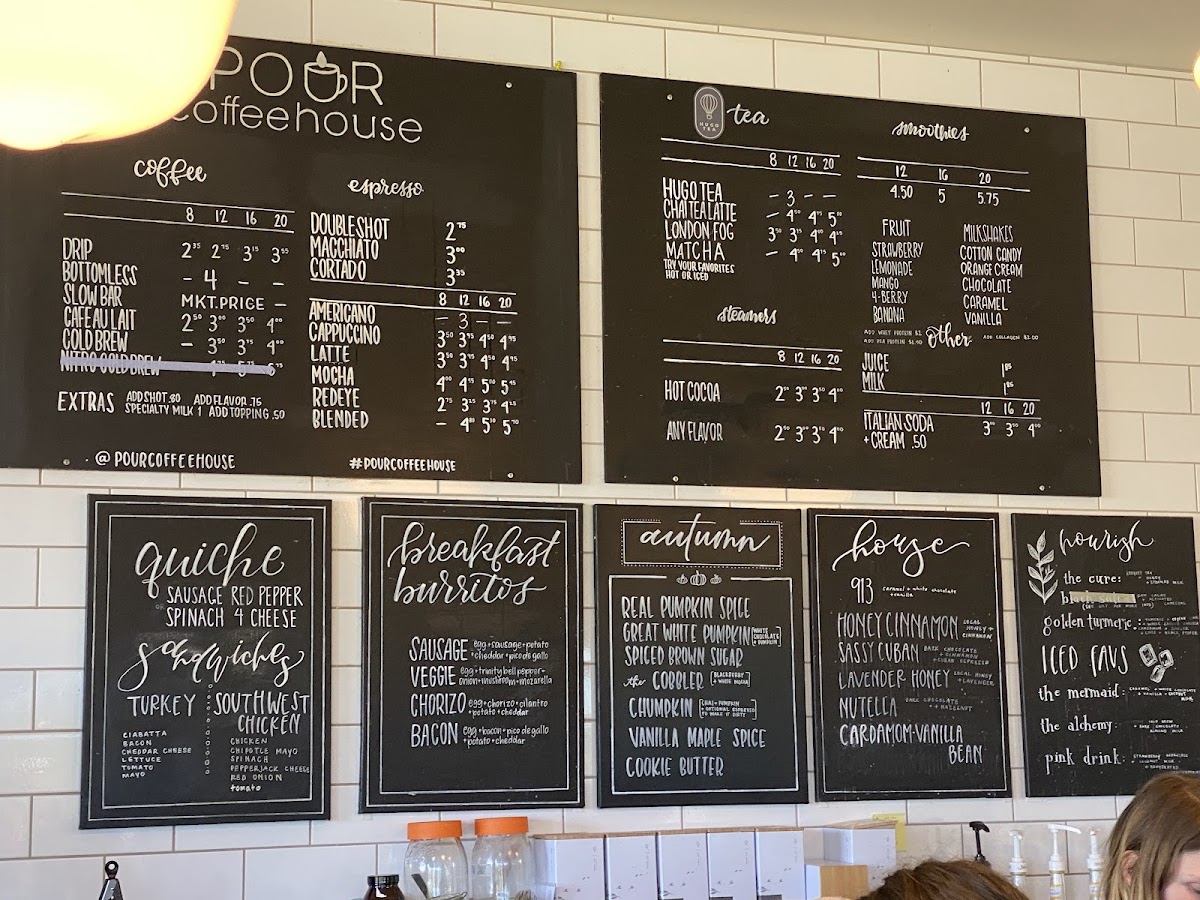 POUR
coffeehouse
coffee
8 12 16 20
DRIP 2³⁵ 2⁷⁵ 3¹⁵ 3³⁵
BOTTOMLESS - 4 - -
SLOW BAR MKT. PRICE -
CAFE AU LAIT 2⁵⁰ 3⁰⁰ 3⁵⁰ 4⁰⁰
COLD BREW - 3⁵⁰ 3⁷⁵ 4⁰⁰
NITRO COLD BREW
EXTRAS ADD SHOT .80 ADD FLAVOR .75
SPECIALTY MILK 1 ADD TOPPING .50
@POURCOFFEEHOUSE
espresso
DOUBLE SHOT 2⁷⁵
MACCHIATO 3⁰⁰
CORTADO 3³⁵
8 12 16 20
AMERICANO - 3 - -
CAPPUCCINO
LATTE
MOCHA
REDEYE
BLENDED
#POURCOFFEEHOUSE
HUGO
TEA
tea
8 12 16 20
HUGO TEA - 3 - -
CHAI TEA LATTE
LONDON FOG
MATCHA
TRY YOUR FAVORITES
HOT OR ICED
steamers
8 12 16 20
HOT COCOA
ANY FLAVOR
smoothies
12 16 20
4.50 5 5.75
FRUIT
STRAWBERRY
LEMONADE
MANGO
4-BERRY
BANANA
MILKSHAKES
COTTON CANDY
ORANGE CREAM
CHOCOLATE
CARAMEL
VANILLA
ADD WHEY PROTEIN $2
ADD PEA PROTEIN
other
ADD COLLAGEN $2.00
JUICE 1⁸⁵
MILK 1⁸⁵
12 16 20
ITALIAN SODA 3⁰⁰ 3⁵⁰ 4⁰⁰
+ CREAM .50
quiche
SAUSAGE RED PEPPER
OR
SPINACH 4 CHEESE
sandwiches
TURKEY
CIABATTA
BACON
CHEDDAR CHEESE
LETTUCE
TOMATO
MAYO
SOUTHWEST
CHICKEN
CHICKEN
CHIPOTLE MAYO
SPINACH
PEPPERJACK CHEESE
RED ONION
tomato
breakfast
burritos
SAUSAGE egg+sausage+potato
+cheddar+pico de gallo
VEGGIE egg+trinity bell pepper+
onion+mushroom+mozarella
CHORIZO egg+chorizo+cilantro
+potato+cheddar
BACON egg+bacon+pico de gallo
+potato+cheddar
autumn
REAL PUMPKIN SPICE
GREAT WHITE PUMPKIN WHITE CHOCOLATE + PUMPKIN
SPICED BROWN SUGAR
the COBBLER BLACKBERRY + WHITE MOCHA
CHUMPKIN CHAI + PUMPKIN
+ OPTIONAL ESPRESSO
TO MAKE IT DIRTY
VANILLA MAPLE SPICE
COOKIE BUTTER
house
913 caramel + white chocolate
+ vanilla
HONEY CINNAMON LOCAL HONEY + CINNAMON
SASSY CUBAN DARK CHOCOLATE
+ CINNAMON
+ CUBAN ESPRESSO
LAVENDER HONEY LOCAL HONEY
+ LAVENDER
NUTELLA DARK CHOCOLATE
+ HAZELNUT
CARDAMOM-VANILLA
BEAN
nourish
the cure:
golden turmeric:
ICED FAVS
the mermaid:
the alchemy:
pink drink: